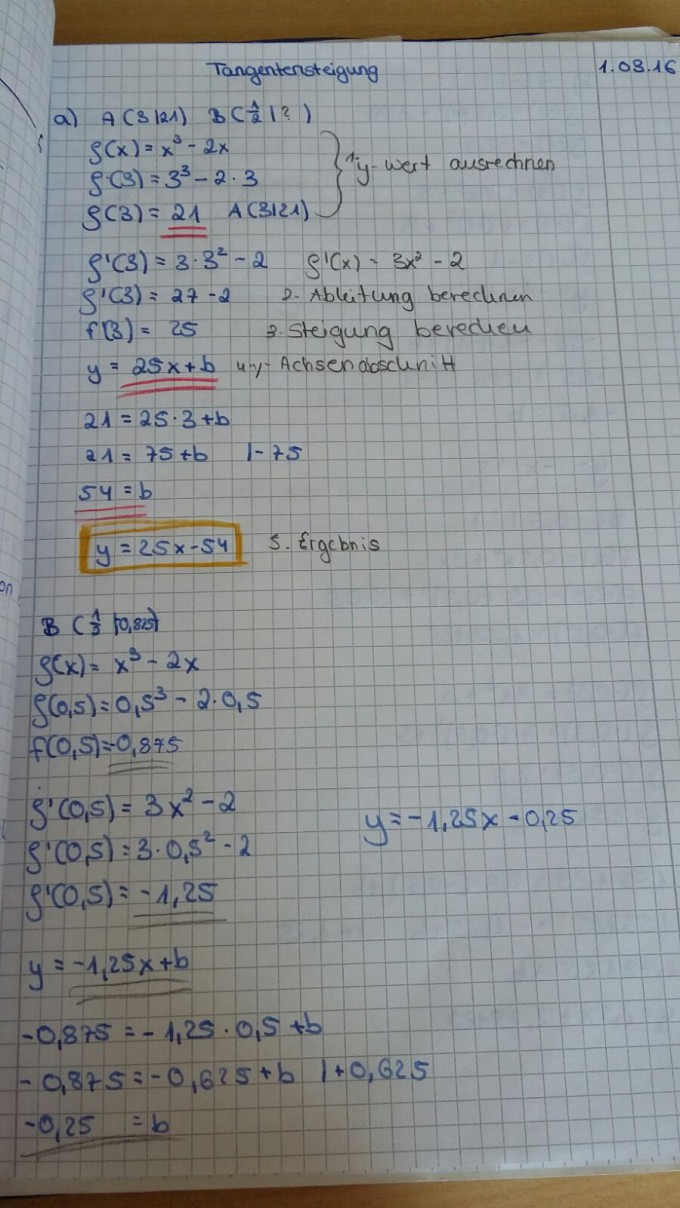 Tangentensteigung 1.03.16
a) A(3|21) B(1/2|?)
f(x) = x³ - 2x
f(3) = 3³ - 2·3 1. y-Wert ausrechnen
f(3) = 21 A(3|21)
f'(3) = 3·3² - 2 f'(x) = 3x² - 2
f'(3) = 27 - 2 2. Ableitung berechnen
f(3) = 25 3. Steigung berechen
y = 25x + b 4. y-Achsenabschnitt
21 = 25·3 + b
21 = 75 + b |-75
54 = b
y = 25x - 54 5. Ergebnis
on
B (
f(x) = x³ - 2x
f(0,5) = 0,5³ - 2·0,5
f(0,5) = -0,875
f'(0,5) = 3x² - 2
y = -1,25x - 0,25
f'(0,5) = 3·0,5² - 2
f'(0,5) = -1,25
y = -1,25x + b
-0,875 = -1,25·0,5 + b
-0,875 = -0,625 + b |+0,625
-0,25 = b